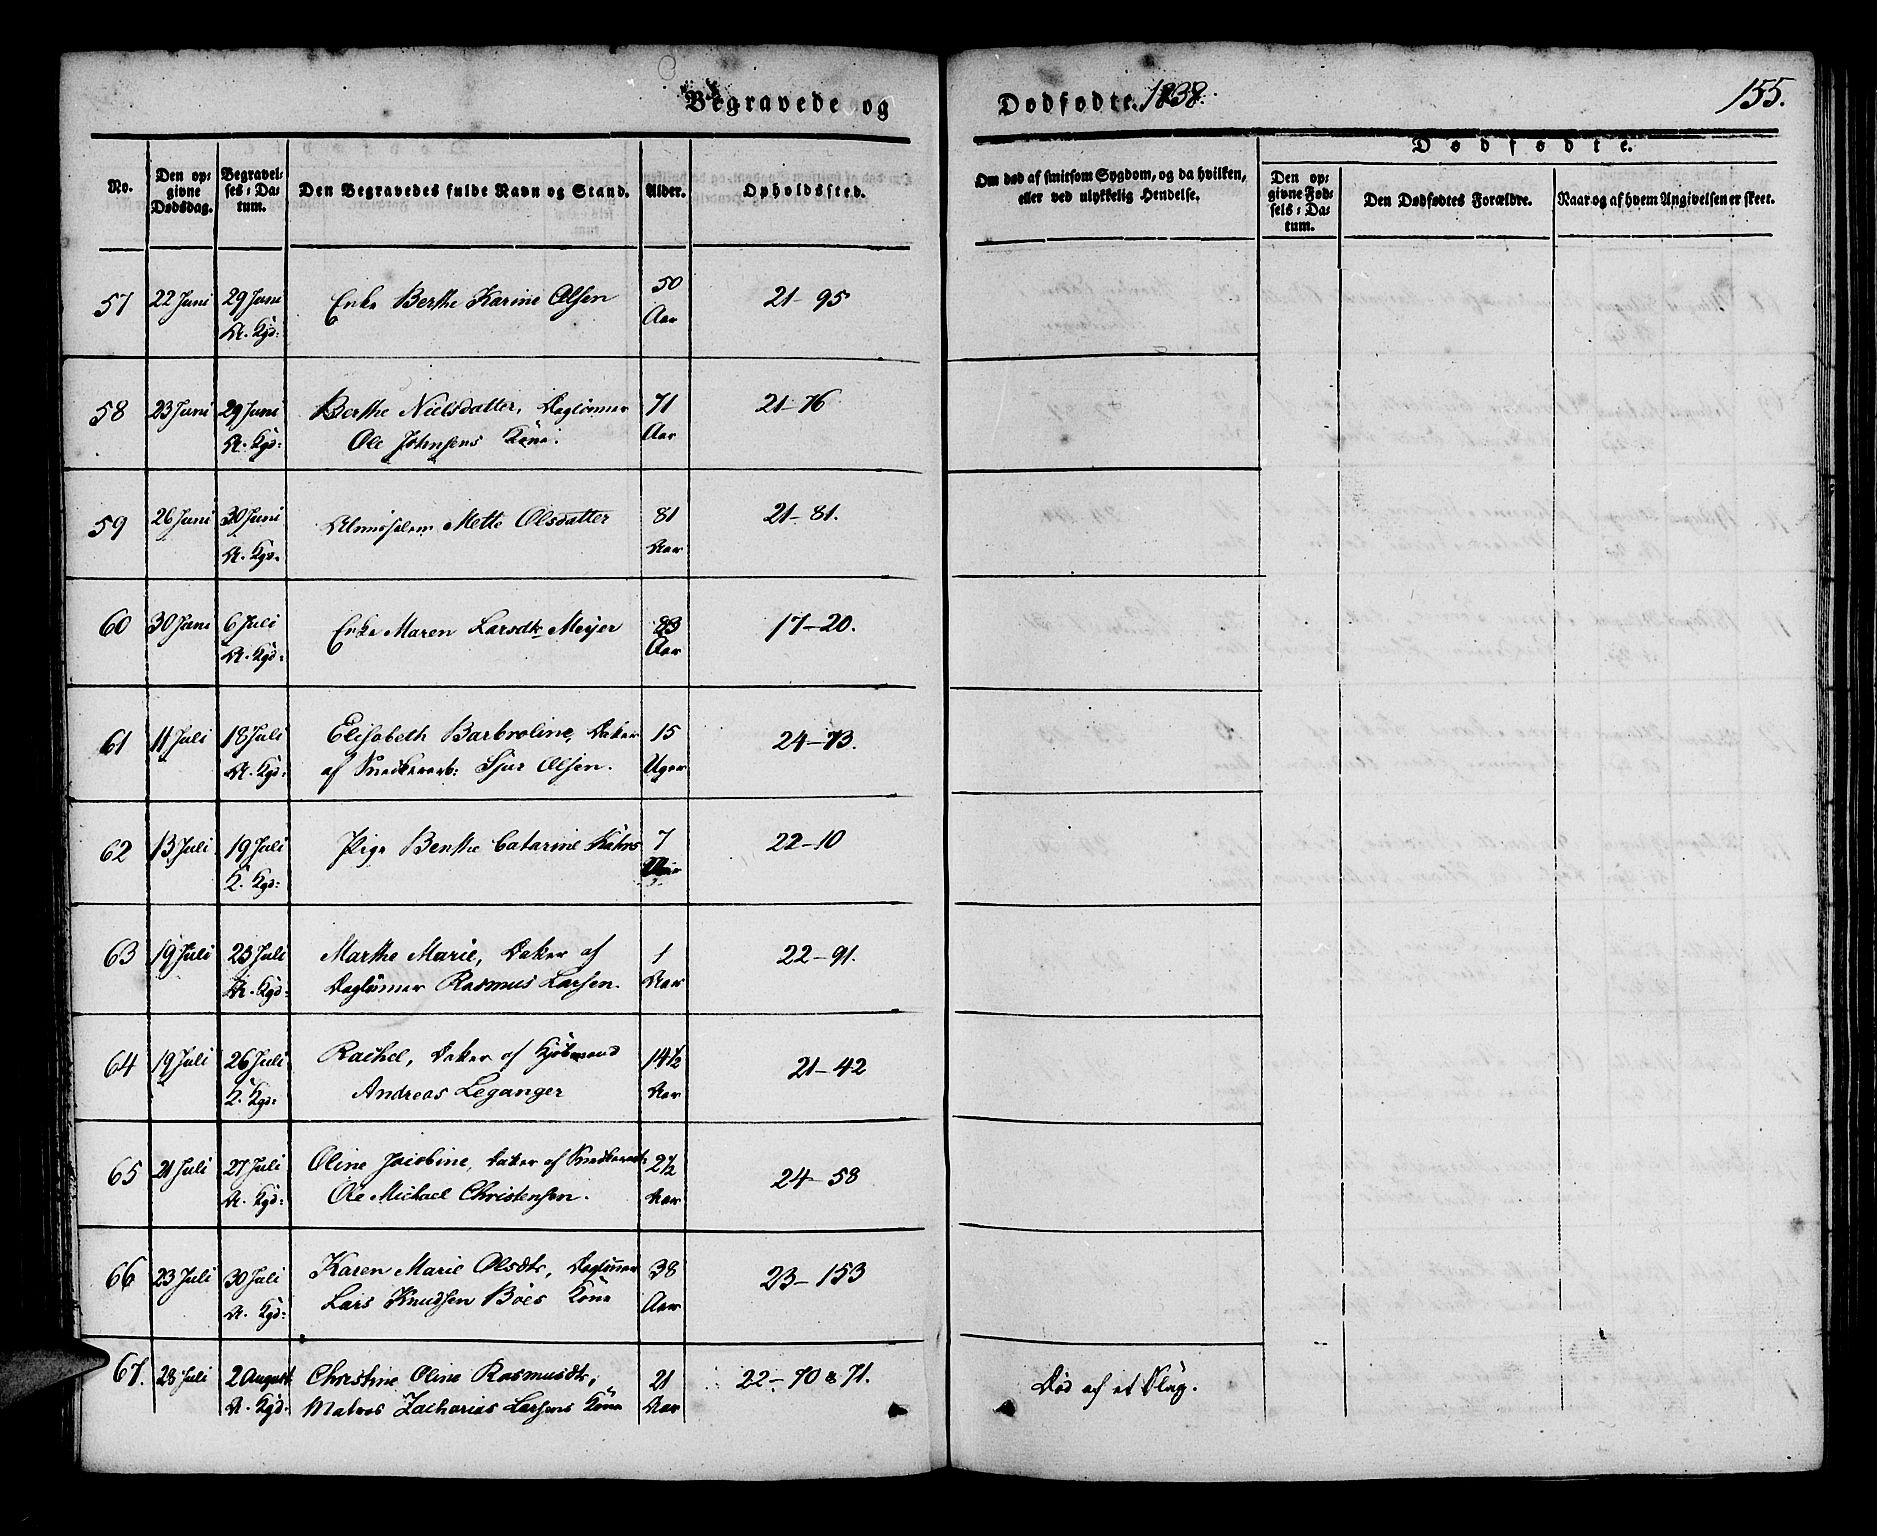 Begravede og Dødfødte. 1838. 155.
Dødfødte.
No.
Den op=
givne
Dødsdag.
Begravel=
ses=Da=
tum.
Den Begravedes fulde Navn og Stand.
Alder.
Opholdssted.
Om død af smitsom Sygdom, og da hvilken,
eller ved ulykkelig Hendelse.
Den op=
givne Fød=
sels=Da=
tum.
Den Dødfødtes Forældre.
Naar og af hvem Angivelsen er skeet.
57 22 Juni 29 Juni Enke Berthe Karine Olsen 50 21-95
A. Kgd: Aar
58 23 Juni 29 Juni Berthe Nielsdatter, Daglønner 71 21-76
A. Kgd: Ole Johnsens Kone. Aar
59 26 Juni 30 Juni Almislem Mette Olsdatter 81 21-81.
A. Kgd. Aar
60 30 Juni 6 Juli Enke Maren Larsdtr Meyer 83 17-20.
A. Kgd: Aar
61 11 Juli 18 Juli Elisabeth Barbroline, Datter 15 24-73.
A. Kgd: af Snedkerarb: Sjur Olsen. Uger
62 13 Juli 19 Juli Pige Benthe Catarine 7 22-10
K. Kgd:
63 19 Juli 23 Juli Marthe Marie, Datter af 1 22-91.
A. Kgd: Daglønner Rasmus Larsen. Aar
64 19 Juli 26 Juli Rachel, Datter af Kjøbmand 14½ 21-42
K. Kgd: Andreas Leganger Aar
65 21 Juli 27 Juli Oline Jacobine, Datter af Snedkerarb: 2½ 24-58
A. Kgd: Ole Michael Christensen. Aar
66 23 Juli 30 Juli Karen Marie Olsdtr, Daglønner 38 23-153
A. Kgd: Lars Knudsen Böes Kone Aar
67. 28 Juli 2 August Christine Oline Rasmusdtr, 21 22-70 & 71. Død af et Slag.
A. Kgd: Matros Zacharias Larsens Kone Aar